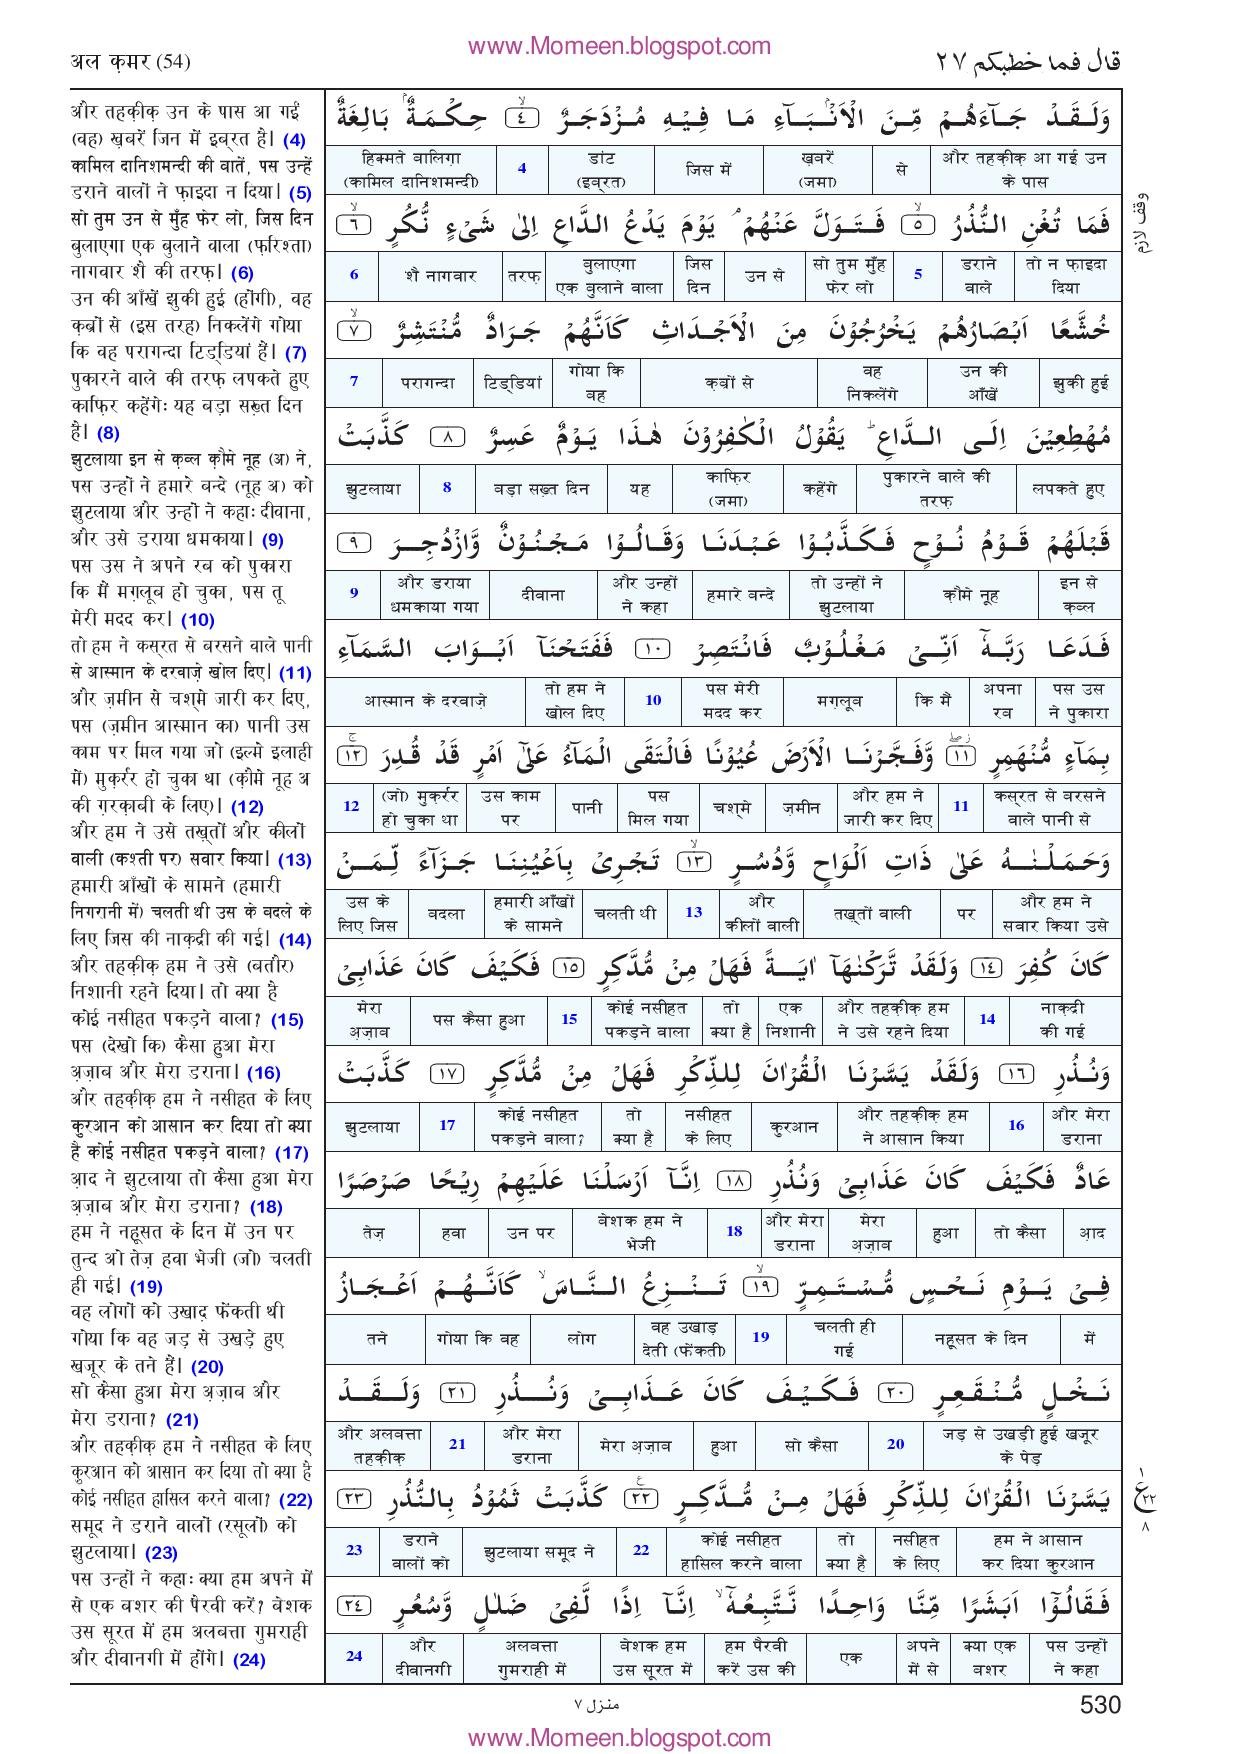 www.Momeen.blogspot.com
अल क़मर (54)
قال فما خطبكم ٢٧
और तहक़ीक़ उन के पास आ गईं
(वह) ख़बरें जिन में इब्रत है। (4)
कामिल दानिशमन्दी की बातें, पस उन्हें
डराने वालों ने फ़ाइदा न दिया। (5)
सो तुम उन से मुँह फेर लो, जिस दिन
बुलाएगा एक बुलाने वाला (फ़रिश्ता)
नागवार शै की तरफ़। (6)
उन की आँखें झुकी हुई (होंगी), वह
क़ब्रों से (इस तरह) निकलेंगे गोया
कि वह परागन्दा टिड्डियां हैं। (7)
पुकारने वाले की तरफ़ लपकते हुए
काफ़िर कहेंगेः यह बड़ा सख़्त दिन
है। (8)
झुटलाया इन से क़ब्ल क़ौमे नूह (अ) ने,
पस उन्हों ने हमारे बन्दे (नूह अ) को
झुटलाया और उन्हों ने कहाः दीवाना,
और उसे डराया धमकाया। (9)
पस उस ने अपने रब को पुकारा
कि मैं मग़लूब हो चुका, पस तू
मेरी मदद कर। (10)
तो हम ने कस्रत से बरसने वाले पानी
से आस्मान के दरवाज़े खोल दिए। (11)
और ज़मीन से चश्मे जारी कर दिए,
पस (ज़मीन आस्मान का) पानी उस
काम पर मिल गया जो (इल्मे इलाही
में) मुक़र्रर हो चुका था (क़ौमे नूह अ
की ग़रक़ाबी के लिए)। (12)
और हम ने उसे तख़्तों और कीलों
वाली (कश्ती पर) सवार किया। (13)
हमारी आँखों के सामने (हमारी
निगरानी में) चलती थी उस के बदले के
लिए जिस की नाक़द्री की गई। (14)
और तहक़ीक़ हम ने उसे (बतौर)
निशानी रहने दिया। तो क्या है
कोई नसीहत पकड़ने वाला? (15)
पस (देखो कि) कैसा हुआ मेरा
अ़ज़ाब और मेरा डराना। (16)
और तहक़ीक़ हम ने नसीहत के लिए
कुरआन को आसान कर दिया तो क्या
है कोई नसीहत पकड़ने वाला? (17)
आ़द ने झुटलाया तो कैसा हुआ मेरा
अ़ज़ाब और मेरा डराना? (18)
हम ने नहूसत के दिन में उन पर
तुन्द ओ तेज़ हवा भेजी (जो) चलती
ही गई। (19)
वह लोगों को उखाड़ फेंकती थी
गोया कि वह जड़ से उखड़े हुए
खजूर के तने हैं। (20)
सो कैसा हुआ मेरा अ़ज़ाब और
मेरा डराना? (21)
और तहक़ीक़ हम ने नसीहत के लिए
कुरआन को आसान कर दिया तो क्या है
कोई नसीहत हासिल करने वाला? (22)
समूद ने डराने वालों (रसूलों) को
झुटलाया। (23)
पस उन्हों ने कहाः क्या हम अपने में
से एक बशर की पैरवी करें? बेशक
उस सूरत में हम अलबत्ता गुमराही
और दीवानगी में होंगे। (24)
وَلَقَدْ جَآءَهُمْ مِّنَ الْاَنْۢبَآءِ مَا فِيْهِ مُزْدَجَرٌ ۙ﴿٤﴾ حِكْمَةٌۢ بَالِغَةٌ
और तहक़ीक़ आ गई उन के पास | से | ख़बरें (जमा) | जिस में | डांट (इब्रत) | 4 | हिक्मते बालिग़ा (कामिल दानिशमन्दी)
فَمَا تُغْنِ النُّذُرُ ۙ﴿٥﴾ فَتَوَلَّ عَنْهُمْ ۘ يَوْمَ يَدْعُ الدَّاعِ اِلٰى شَىْءٍ نُّكُرٍ ۙ﴿٦﴾
तो न फ़ाइदा दिया | डराने वाले | 5 | सो तुम मुँह फेर लो | उन से | जिस दिन | बुलाएगा एक बुलाने वाला | तरफ़ | शै नागवार | 6
خُشَّعًا اَبْصَارُهُمْ يَخْرُجُوْنَ مِنَ الْاَجْدَاثِ كَاَنَّهُمْ جَرَادٌ مُّنْتَشِرٌ ۙ﴿٧﴾
झुकी हुई | उन की आँखें | वह निकलेंगे | क़ब्रों से | गोया कि वह | टिड्डियां | परागन्दा | 7
مُهْطِعِيْنَ اِلَى الدَّاعِ ؕ يَقُوْلُ الْكٰفِرُوْنَ هٰذَا يَوْمٌ عَسِرٌ ﴿٨﴾ كَذَّبَتْ
लपकते हुए | पुकारने वाले की तरफ़ | कहेंगे | काफ़िर (जमा) | यह | बड़ा सख़्त दिन | 8 | झुटलाया
قَبْلَهُمْ قَوْمُ نُوْحٍ فَكَذَّبُوْا عَبْدَنَا وَقَالُوْا مَجْنُوْنٌ وَّازْدُجِرَ ﴿٩﴾
इन से क़ब्ल | क़ौमे नूह | तो उन्हों ने झुटलाया | हमारे बन्दे | और उन्हों ने कहा | दीवाना | और डराया धमकाया गया | 9
فَدَعَا رَبَّهٗٓ اَنِّىْ مَغْلُوْبٌ فَانْتَصِرْ ﴿١٠﴾ فَفَتَحْنَآ اَبْوَابَ السَّمَآءِ
पस उस ने पुकारा | अपना रब | कि मैं | मग़लूब | पस मेरी मदद कर | 10 | तो हम ने खोल दिए | आस्मान के दरवाज़े
بِمَآءٍ مُّنْهَمِرٍ ﴿١١﴾ وَّفَجَّرْنَا الْاَرْضَ عُيُوْنًا فَالْتَقَى الْمَآءُ عَلٰٓى اَمْرٍ قَدْ قُدِرَ ۚ﴿١٢﴾
कस्रत से बरसने वाले पानी से | 11 | और हम ने जारी कर दिए | ज़मीन | चश्मे | पस मिल गया | पानी | उस काम पर | (जो) मुक़र्रर हो चुका था | 12
وَحَمَلْنٰهُ عَلٰى ذَاتِ اَلْوَاحٍ وَّدُسُرٍ ۙ﴿١٣﴾ تَجْرِىْ بِاَعْيُنِنَا جَزَآءً لِّمَنْ
और हम ने सवार किया उसे | पर | तख़्तों वाली | और कीलों वाली | 13 | चलती थी | हमारी आँखों के सामने | बदला | उस के लिए जिस
كَانَ كُفِرَ ﴿١٤﴾ وَلَقَدْ تَّرَكْنٰهَآ اٰيَةً فَهَلْ مِنْ مُّدَّكِرٍ ﴿١٥﴾ فَكَيْفَ كَانَ عَذَابِىْ
नाक़द्री की गई | 14 | और तहक़ीक़ हम ने उसे रहने दिया | एक निशानी | तो क्या है | कोई नसीहत पकड़ने वाला | 15 | पस कैसा हुआ | मेरा अ़ज़ाब
وَنُذُرِ ﴿١٦﴾ وَلَقَدْ يَسَّرْنَا الْقُرْاٰنَ لِلذِّكْرِ فَهَلْ مِنْ مُّدَّكِرٍ ﴿١٧﴾ كَذَّبَتْ
और मेरा डराना | 16 | और तहक़ीक़ हम ने आसान किया | कुरआन | नसीहत के लिए | तो क्या है | कोई नसीहत पकड़ने वाला? | 17 | झुटलाया
عَادٌ فَكَيْفَ كَانَ عَذَابِىْ وَنُذُرِ ﴿١٨﴾ اِنَّآ اَرْسَلْنَا عَلَيْهِمْ رِيْحًا صَرْصَرًا
आ़द | तो कैसा | हुआ | मेरा अ़ज़ाब | और मेरा डराना | 18 | बेशक हम ने भेजी | उन पर | हवा | तेज़
فِىْ يَوْمِ نَحْسٍ مُّسْتَمِرٍّ ۙ﴿١٩﴾ تَنْزِعُ النَّاسَ ۙ كَاَنَّهُمْ اَعْجَازُ
में | नहूसत के दिन | चलती ही गई | 19 | वह उखाड़ देती (फेंकती) | लोग | गोया कि वह | तने
نَخْلٍ مُّنْقَعِرٍ ﴿٢٠﴾ فَكَيْفَ كَانَ عَذَابِىْ وَنُذُرِ ﴿٢١﴾ وَلَقَدْ
जड़ से उखड़ी हुई खजूर के पेड़ | 20 | सो कैसा | हुआ | मेरा अ़ज़ाब | और मेरा डराना | 21 | और अलबत्ता तहक़ीक़
يَسَّرْنَا الْقُرْاٰنَ لِلذِّكْرِ فَهَلْ مِنْ مُّدَّكِرٍ ﴿٢٢﴾ كَذَّبَتْ ثَمُوْدُ بِالنُّذُرِ ﴿٢٣﴾
हम ने आसान कर दिया कुरआन | नसीहत के लिए | तो क्या है | कोई नसीहत हासिल करने वाला | 22 | झुटलाया समूद ने | डराने वालों को | 23
فَقَالُوْٓا اَبَشَرًا مِّنَّا وَاحِدًا نَّتَّبِعُهٗٓ ۙ اِنَّآ اِذًا لَّفِىْ ضَلٰلٍ وَّسُعُرٍ ﴿٢٤﴾
पस उन्हों ने कहा | क्या एक बशर | अपने में से | एक | हम पैरवी करें उस की | बेशक हम उस सूरत में | अलबत्ता गुमराही में | और दीवानगी | 24
وقف لازم
١
ع
٢٢
٨
منزل ٧
530
www.Momeen.blogspot.com